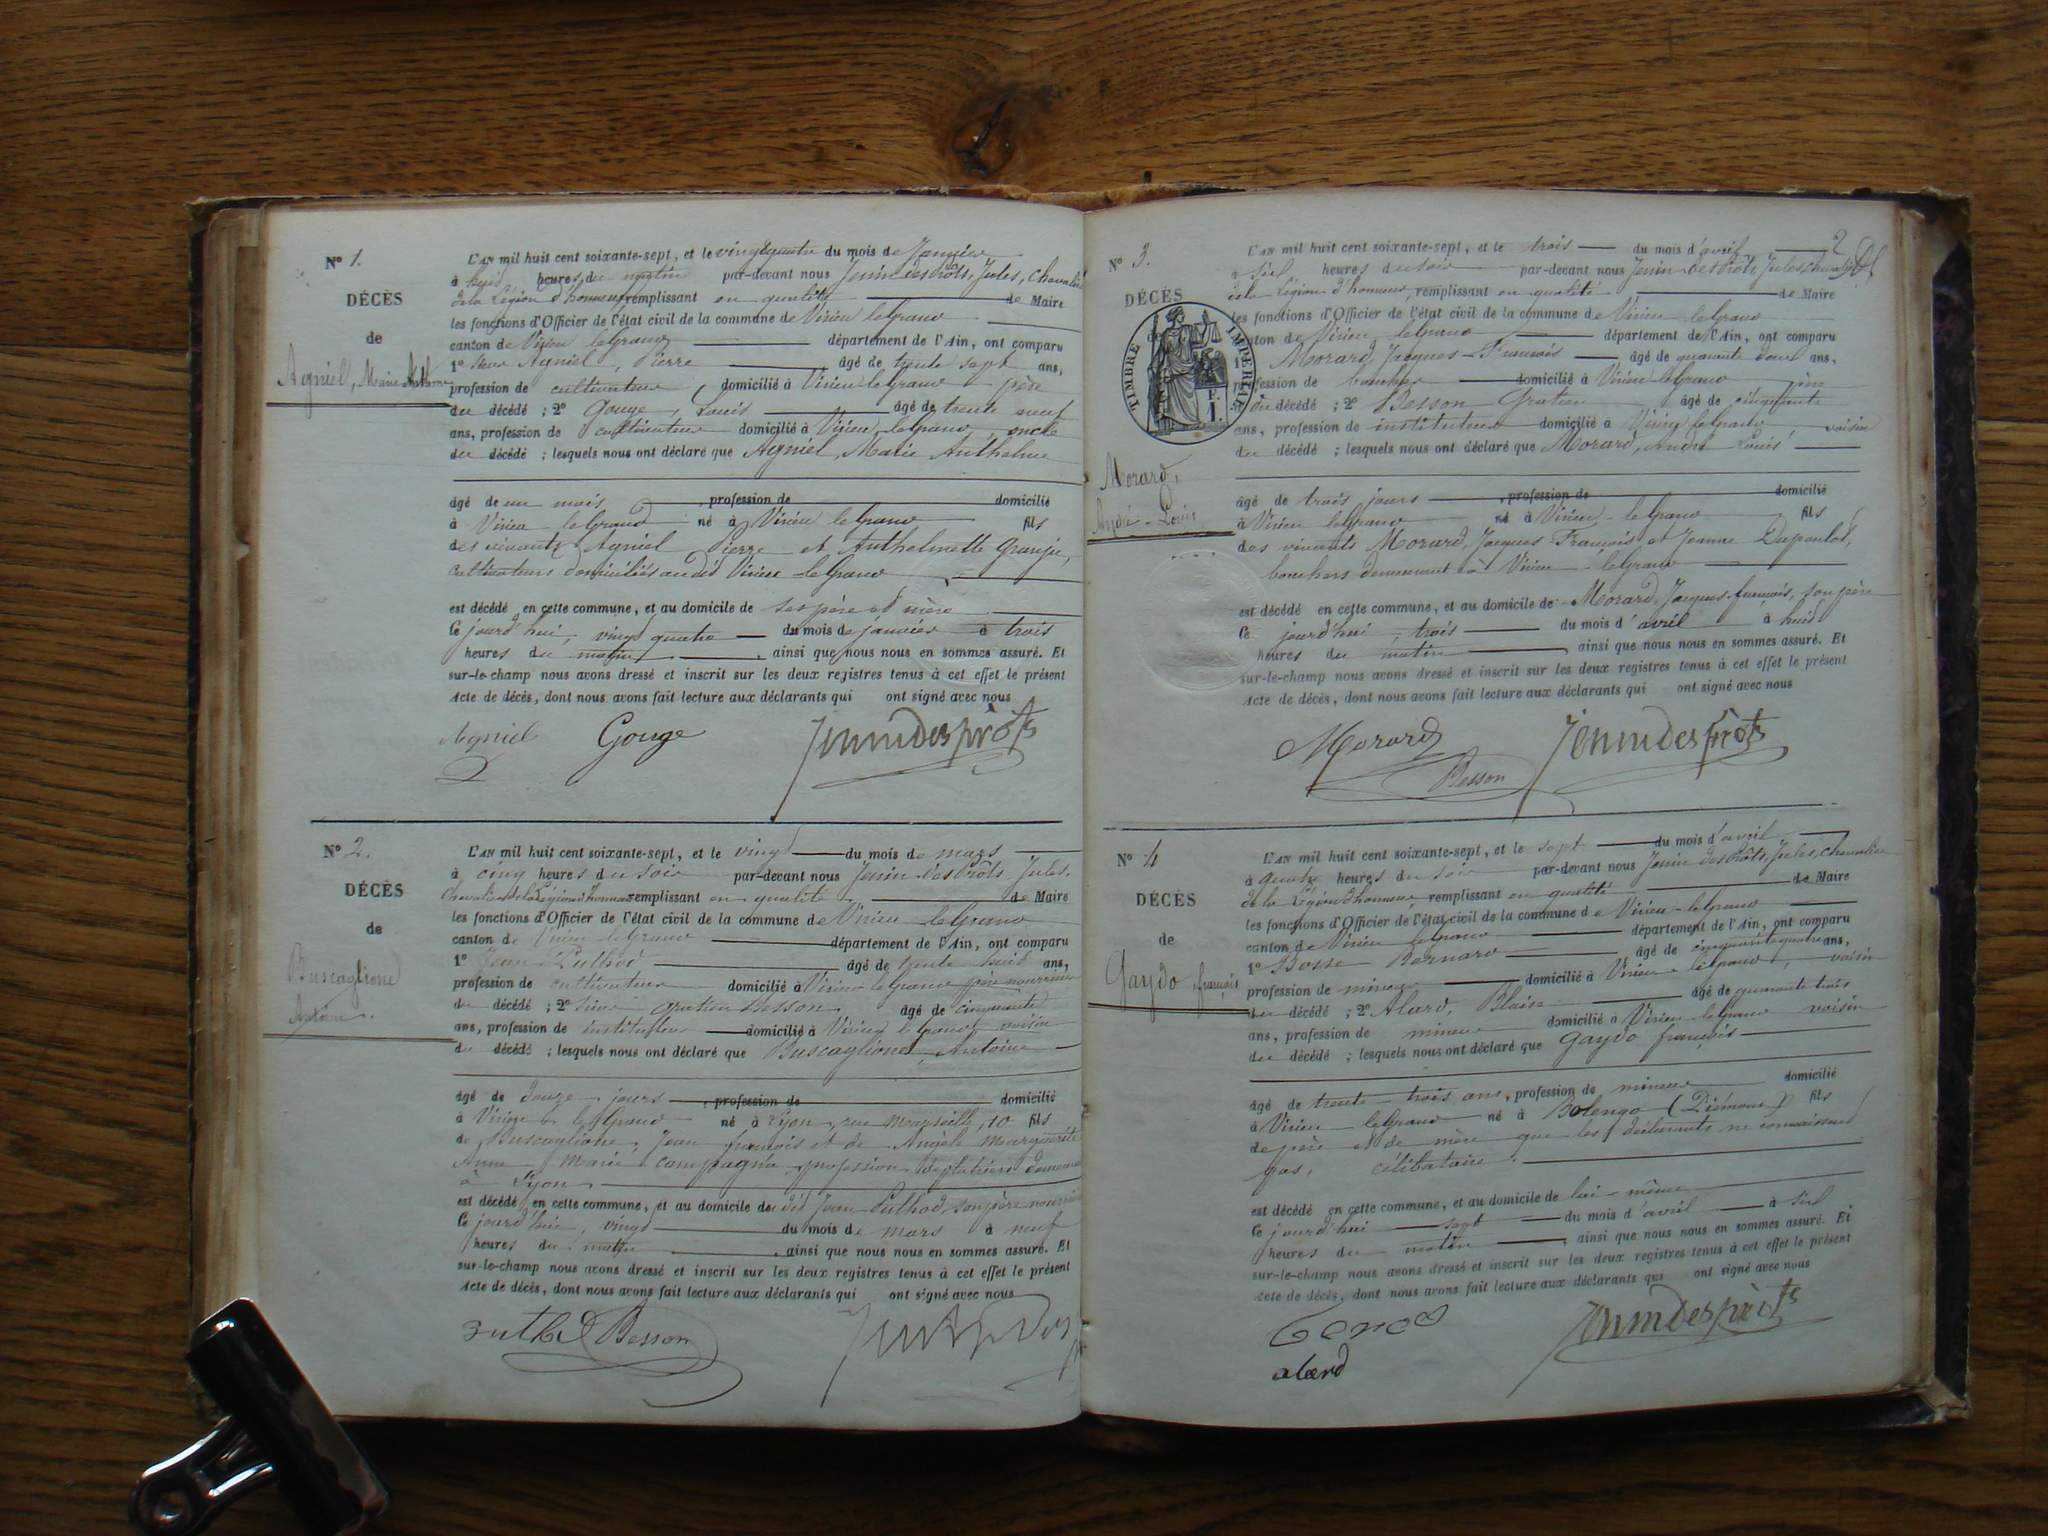 N° 1.
DÉCÈS
de
Agniel, Marie Anthelme
L'AN mil huit cent soixante-sept, et le vingt quatre du mois de Janvier
à huit heures du matin par-devant nous Jenin des Prôts, Jules, chevalier
de la Légion d'honneur, remplissant en qualité de Maire
les fonctions d'Officier de l'état civil de la commune de Virieu le Grand
canton de Virieu le Grand département de l'Ain, ont comparu
1° Agniel, Pierre âgé de trente sept ans,
profession de cultivateur domicilié à Virieu le Grand père
du décédé ; 2° Gouge, Louis âgé de trente neuf
ans, profession de cultivateur domicilié à Virieu le Grand oncle
du décédé ; lesquels nous ont déclaré que Agniel, Marie Anthelme
âgé de un mois profession de domicilié
à Virieu le Grand né à Virieu le Grand fils
des vivants Agniel Pierre et Anthelmette Granju,
cultivateurs domiciliés au dit Virieu-le Grand
est décédé en cette commune, et au domicile de ses père et mère
Ce jourd'hui, vingt quatre du mois de janvier à trois
heures du matin, ainsi que nous nous en sommes assuré. Et
sur-le-champ nous avons dressé et inscrit sur les deux registres tenus à cet effet le présent
Acte de décès, dont nous avons fait lecture aux déclarants qui ont signé avec nous
Agniel Gouge Jenin des prôts
N° 2.
DÉCÈS
de
Buscaglione
Antoine.
L'AN mil huit cent soixante-sept, et le vingt du mois de mars
à cinq heures du soir par-devant nous Jenin des Prôts, Jules,
chevalier de la Légion d'honneur remplissant en qualité de Maire
les fonctions d'Officier de l'état civil de la commune de Virieu le Grand
canton de Virieu le Grand département de l'Ain, ont comparu
1° Jean Puthod âgé de trente huit ans,
profession de cultivateur domicilié à Virieu le Grand père nourricier
du décédé ; 2° Gratien Besson âgé de cinquante
ans, profession de instituteur domicilié à Virieu le Grand voisin
du décédé ; lesquels nous ont déclaré que Buscaglione, Antoine
âgé de douze jours, profession de domicilié
à Virieu le Grand né à Lyon, rue Marseille, 10 fils
de Buscaglione, Jean françois et de Angèle Marguerite
Anne Marie Campagna, profession de plâtrière demeurant
à Lyon
est décédé en cette commune, et au domicile du dit Jean Puthod, son père nourricier
Ce jourd'hui, vingt du mois de mars à neuf
heures du matin, ainsi que nous nous en sommes assuré. Et
sur-le-champ nous avons dressé et inscrit sur les deux registres tenus à cet effet le présent
Acte de décès, dont nous avons fait lecture aux déclarants qui ont signé avec nous
Besson
2
N° 3.
DÉCÈS
TIMBRE IMPERIAL
1 F.
Morard,
André-Louis
L'AN mil huit cent soixante-sept, et le trois du mois d'avril
à six heures du soir par-devant nous Jenin-des Prôts, Jules, chevalier
de la Légion d'honneur, remplissant en qualité de Maire
les fonctions d'Officier de l'état civil de la commune de Virieu le Grand
canton de Virieu le Grand département de l'Ain, ont comparu
1° Morard, Jacques-François âgé de quarante deux ans,
profession de boucher domicilié à Virieu le Grand père
du décédé ; 2° Besson Gratien âgé de cinquante
ans, profession de instituteur domicilié à Virieu le Grand voisin
du décédé ; lesquels nous ont déclaré que Morard, André Louis
âgé de trois jours, profession de domicilié
à Virieu le Grand né à Virieu-le Grand fils
des vivants Morard, Jacques François et Jeanne Dupoulot,
bouchers demeurant à Virieu-le Grand
est décédé en cette commune, et au domicile de Morard, Jacques-françois, son père
Ce jourd'hui, trois du mois d'avril à huit
heures du matin, ainsi que nous nous en sommes assuré. Et
sur-le-champ nous avons dressé et inscrit sur les deux registres tenus à cet effet le présent
Acte de décès, dont nous avons fait lecture aux déclarants qui ont signé avec nous
Morard Jenin des prôts
Besson
N° 4
DÉCÈS
de
Gaydo françois
L'AN mil huit cent soixante-sept, et le sept du mois d'avril
à quatre heures du soir par-devant nous Jenin des Prôts, Jules, chevalier
de la Légion d'honneur remplissant en qualité de Maire
les fonctions d'Officier de l'état civil de la commune de Virieu-le Grand
canton de Virieu le Grand département de l'Ain, ont comparu
1° Bosse Bernard âgé de cinquante quatre ans,
profession de mineur domicilié à Virieu-le Grand, voisin
du décédé ; 2° Alard, Blaise âgé de quarante trois
ans, profession de mineur domicilié à Virieu-le Grand voisin
du décédé ; lesquels nous ont déclaré que Gaydo françois
âgé de trente trois ans, profession de mineur domicilié
à Virieu le Grand né à Bolengo (Piémont) fils
de père et de mère que les déclarants ne connaissent
pas, célibataire.
est décédé en cette commune, et au domicile de lui-même
Ce jourd'hui sept du mois d'avril à six
heures du matin, ainsi que nous nous en sommes assuré. Et
sur-le-champ nous avons dressé et inscrit sur les deux registres tenus à cet effet le présent
Acte de décès, dont nous avons fait lecture aux déclarants qui ont signé avec nous
Jenin des prôts
alard